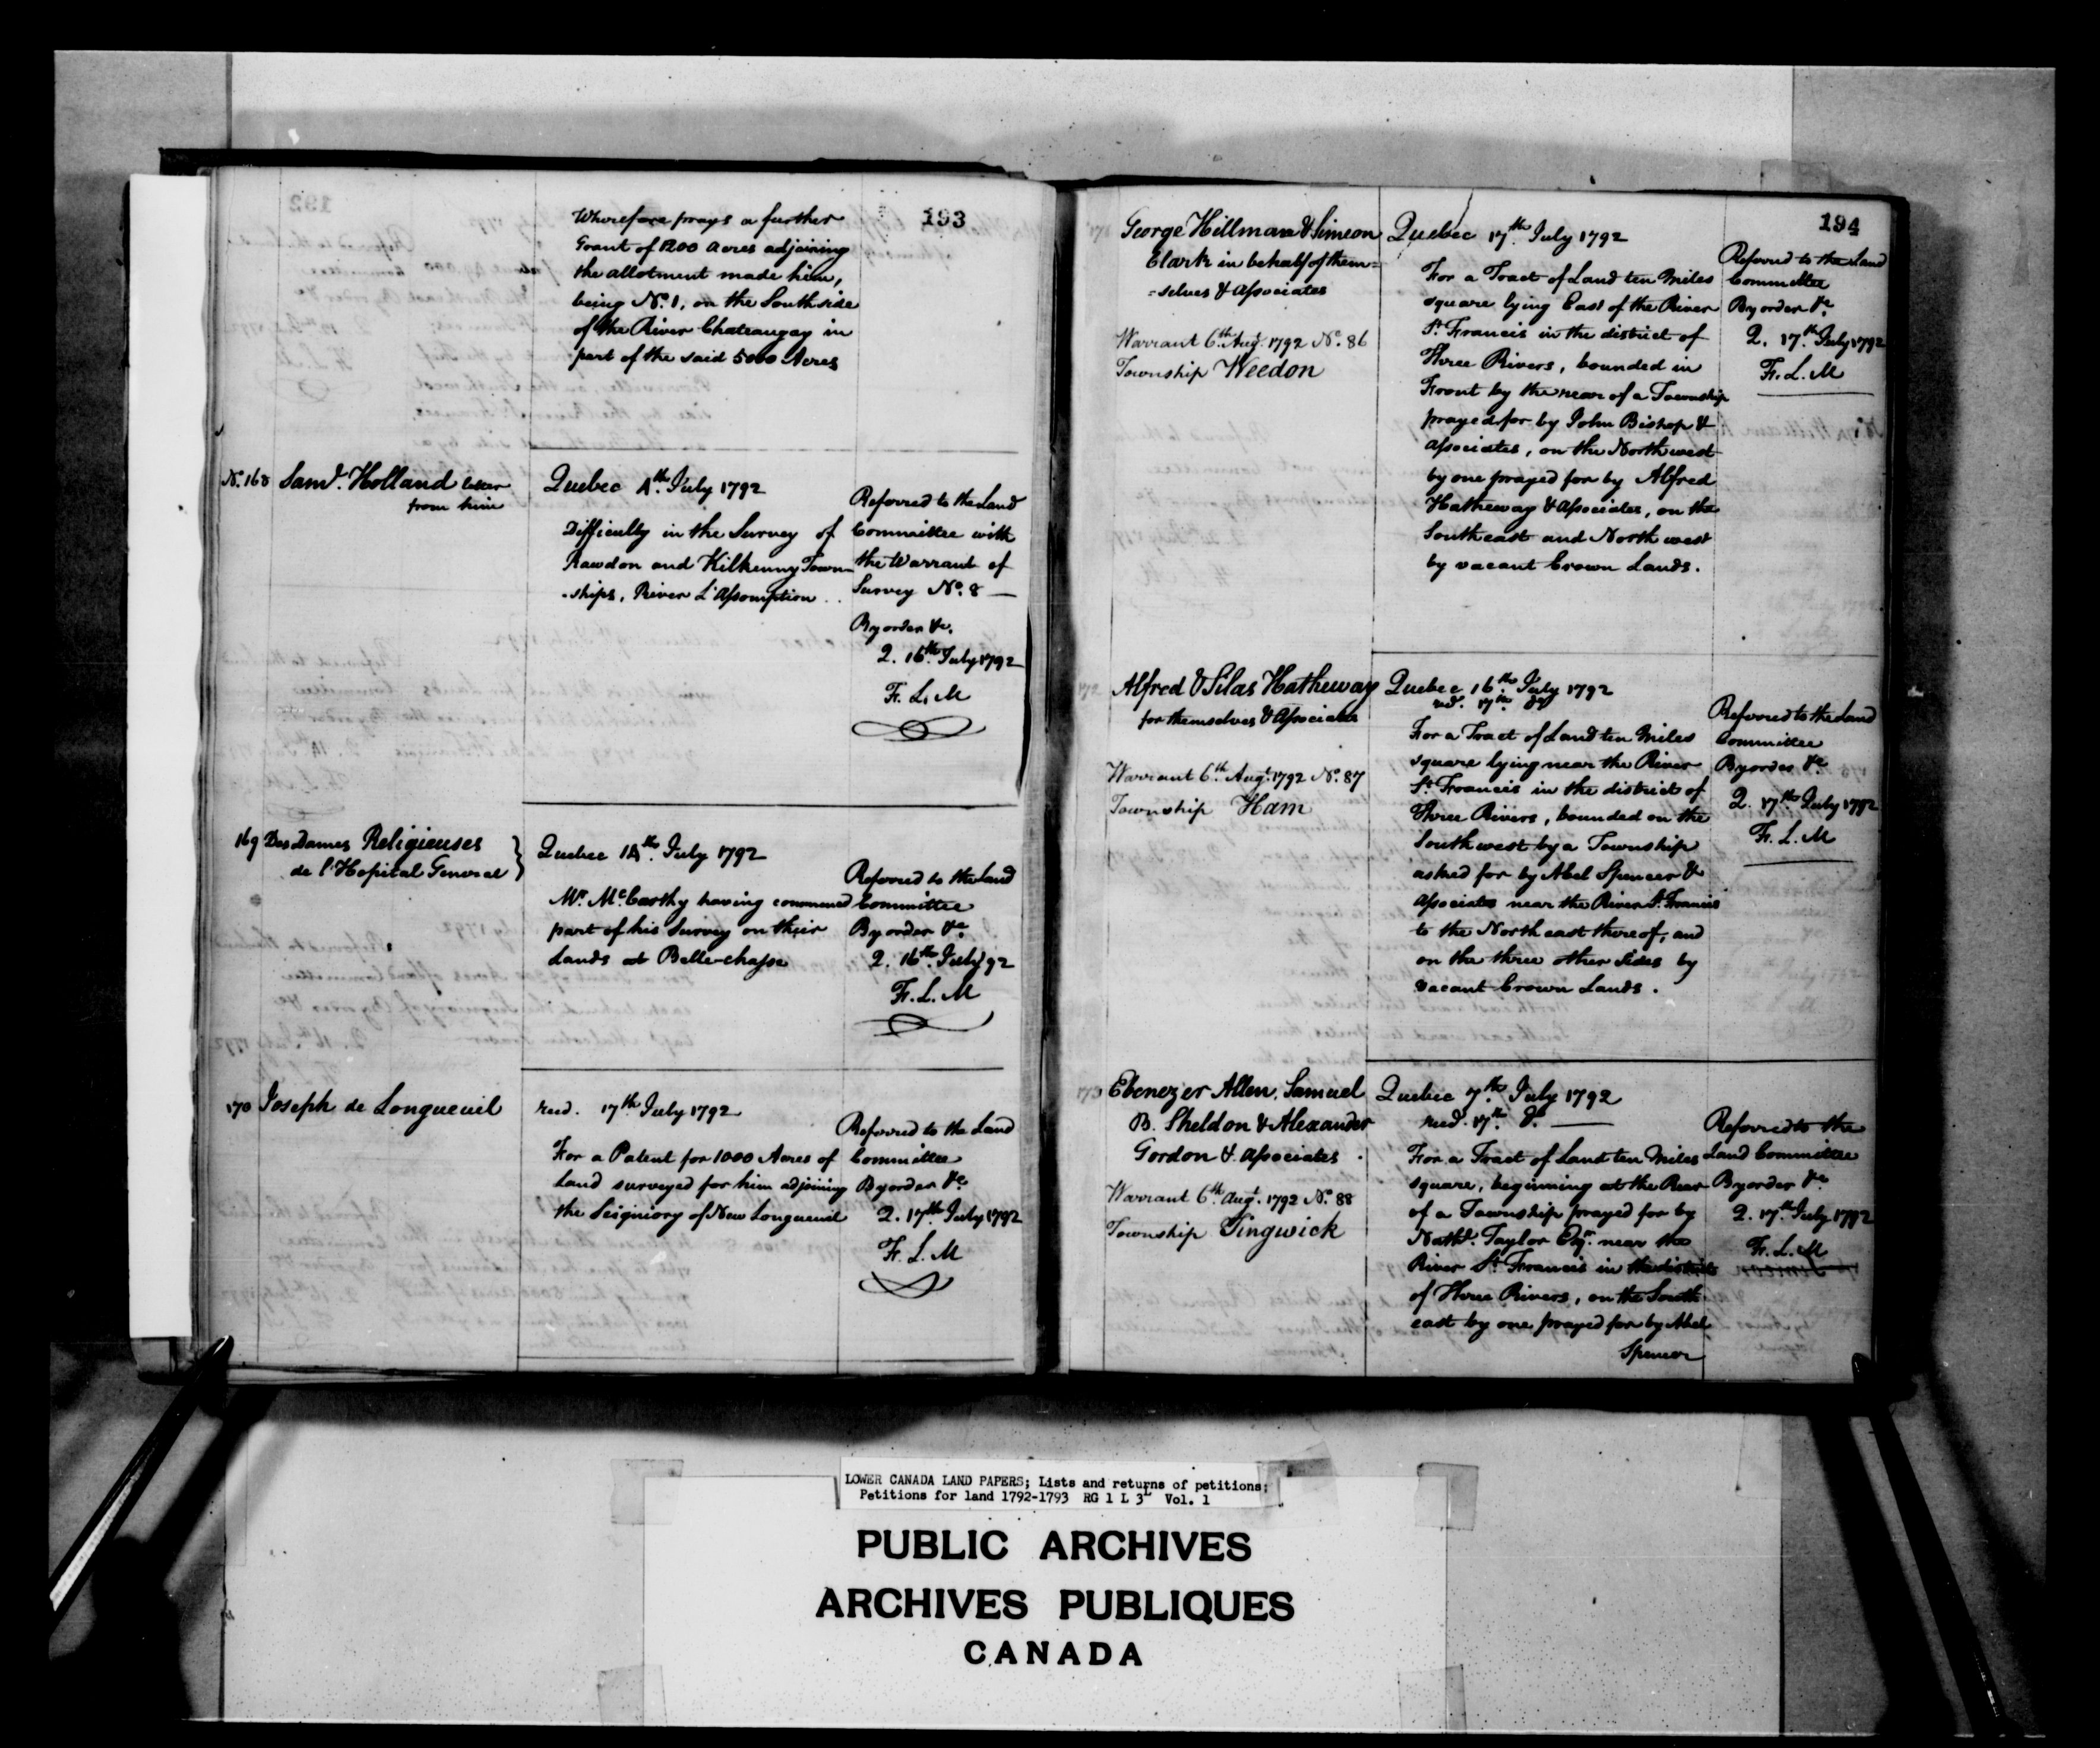 193
Wherefore prays a further
Grant of 1200 Acres adjoining
the allotment made him,
being No. 1, on the South side
of the River Chateaugay in
part of the said 5000 Acres
No. 168 Saml. Holland letter
from him
Quebec 4th July 1792
Difficulty in the Survey of
Rawdon and Kilkenny Town
-ships, River L'Assomption
Referred to the Land
Committee with
the Warrant of
Survey No. 8 —
By order &c.
Q. 16th July 1792
F. L. M
169 Des Dames Religieuses
de l'Hopital General
Quebec 14th July 1792
Mr. McCarthy having commenced
part of his Survey on their
Lands at Belle-chasse
Referred to the Land
Committee
By order &c
Q. 16th July 92
F. L. M
170 Joseph de Longueuil
recd. 17th July 1792
For a Patent for 1000 Acres of
Land surveyed for him adjoining
the Seigniory of New Longueuil
Referred to the Land
Committee
By order &c
Q. 17th July 1792
F. L. M
194
George Hillman & Simeon
Clark in behalf of them=
=selves & Associates
Warrant 6th Augt. 1792 No. 86
Township Weedon
Quebec 17th July 1792
For a Tract of Land ten Miles
square lying East of the River
St. Francis in the district of
Three Rivers, bounded in
Front by the rear of a Township
prayed for by John Bishop &
Associates, on the North west
by one prayed for by Alfred
Hatheway & Associates, on the
South east and North west
by vacant Crown Lands.
Referred to the Land
Committee
By order &c.
Q. 17th July 1792
F. L. M
172 Alfred & Silas Hatheway
for themselves & Associates
Warrant 6th Augt. 1792 No. 87
Township Ham
Quebec 16th July 1792
recd. 17th do
For a Tract of Land ten Miles
square lying near the River
St. Francis in the district of
Three Rivers, bounded on the
South west by a Township
asked for by Abel Spencer &
Associates near the River St. Francis
to the North east thereof, and
on the three other Sides by
vacant Crown Lands.
Referred to the Land
Committee
By order &c
Q. 17th July 1792
F. L. M
173 Ebenezer Allen, Samuel
B. Sheldon & Alexander
Gordon & Associates.
Warrant 6th Augt. 1792 No 88
Township Tingwick
Quebec 7th July 1792
recd. 17th do
For a Tract of Land ten Miles
square, beginning at the Rear
of a Township prayed for by
Nathl. Taylor Esqr. near the
River St. Francis in the district
of Three Rivers, on the South
east by one prayed for by Abel
Spencer
Referred to the
Land Committee
By order &c
Q. 17th July 1792
F. L. M
LOWER CANADA LAND PAPERS; Lists and returns of petitions;
Petitions for land 1792-1793 RG 1 L 3L Vol. 1
PUBLIC ARCHIVES
ARCHIVES PUBLIQUES
CANADA